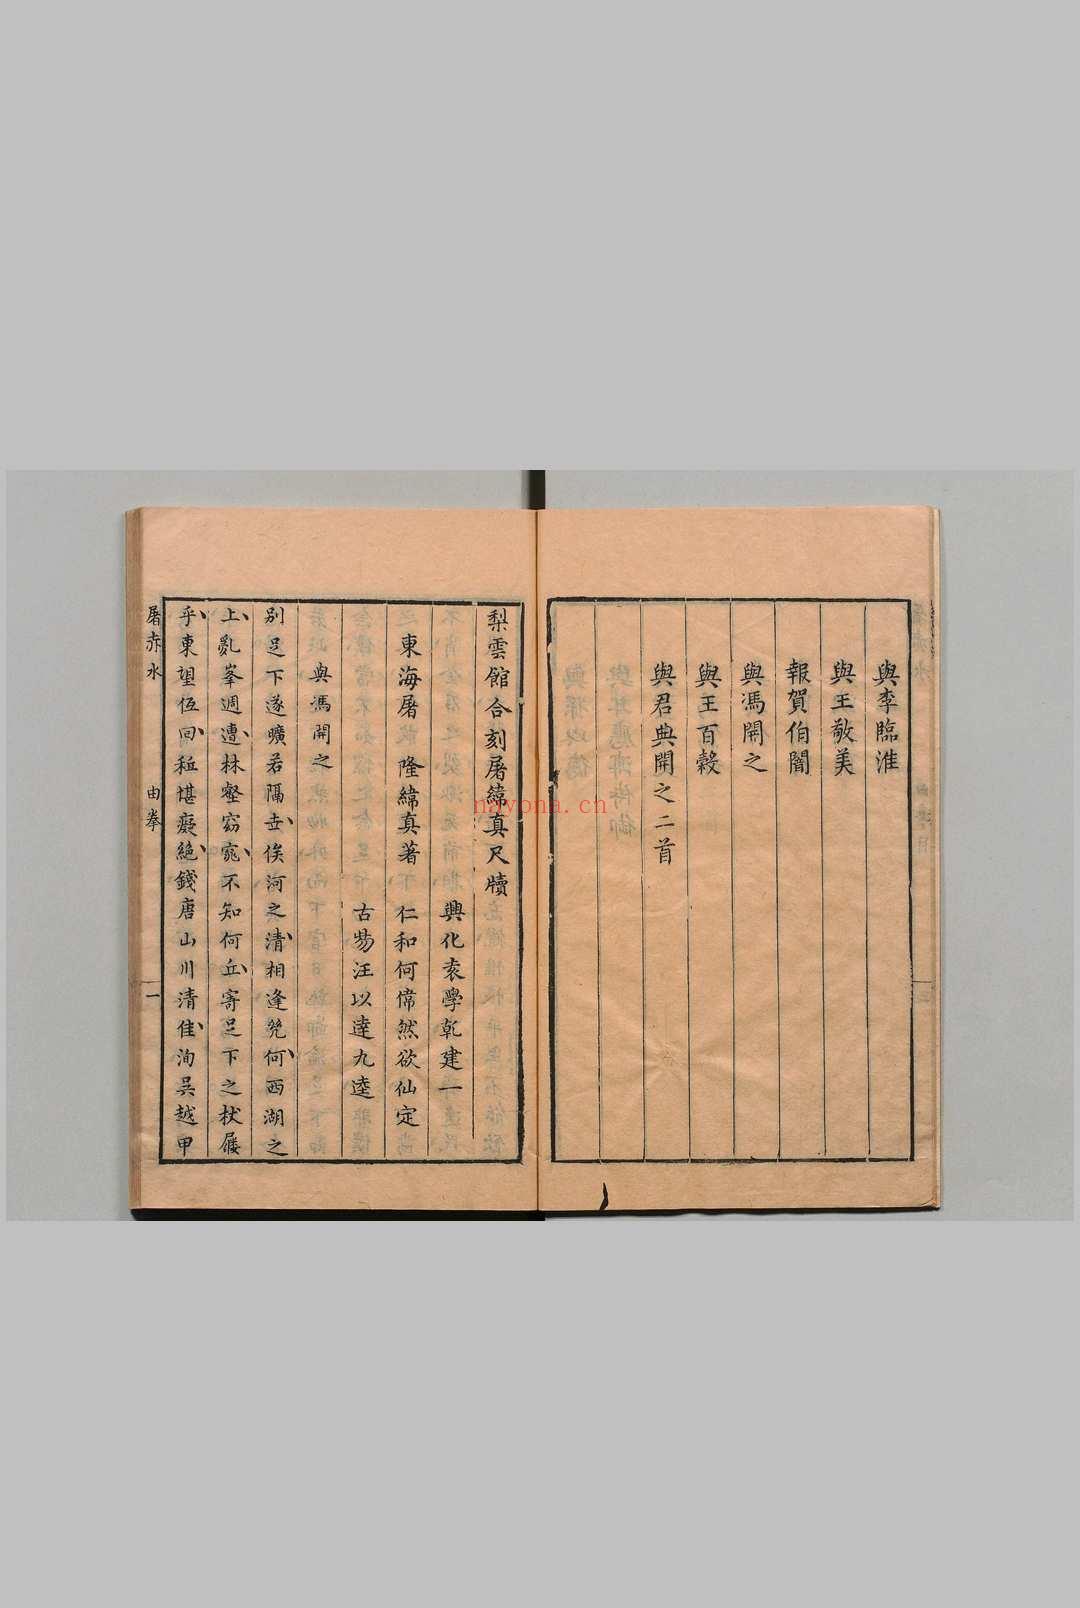 與李臨淮
與王敬美
報賀伯闇
與馮開之
與王百穀
與君典開之二首
梨雲館合刻屠緯真尺牘
興化袁學乾建一
東海屠 隆緯真著 仁和何偉然欲仙定
古昜汪以達九逵
與馮開之
別足下遂曠若隔世俟河之清相逢幾何西湖之
上亂峯週遭林壑窈窕不知何丘寄足下之杖屨
乎東望恆回秪堪癡絶錢唐山川清佳洵吳越甲
屠赤水
由拳
一
nayona.cn